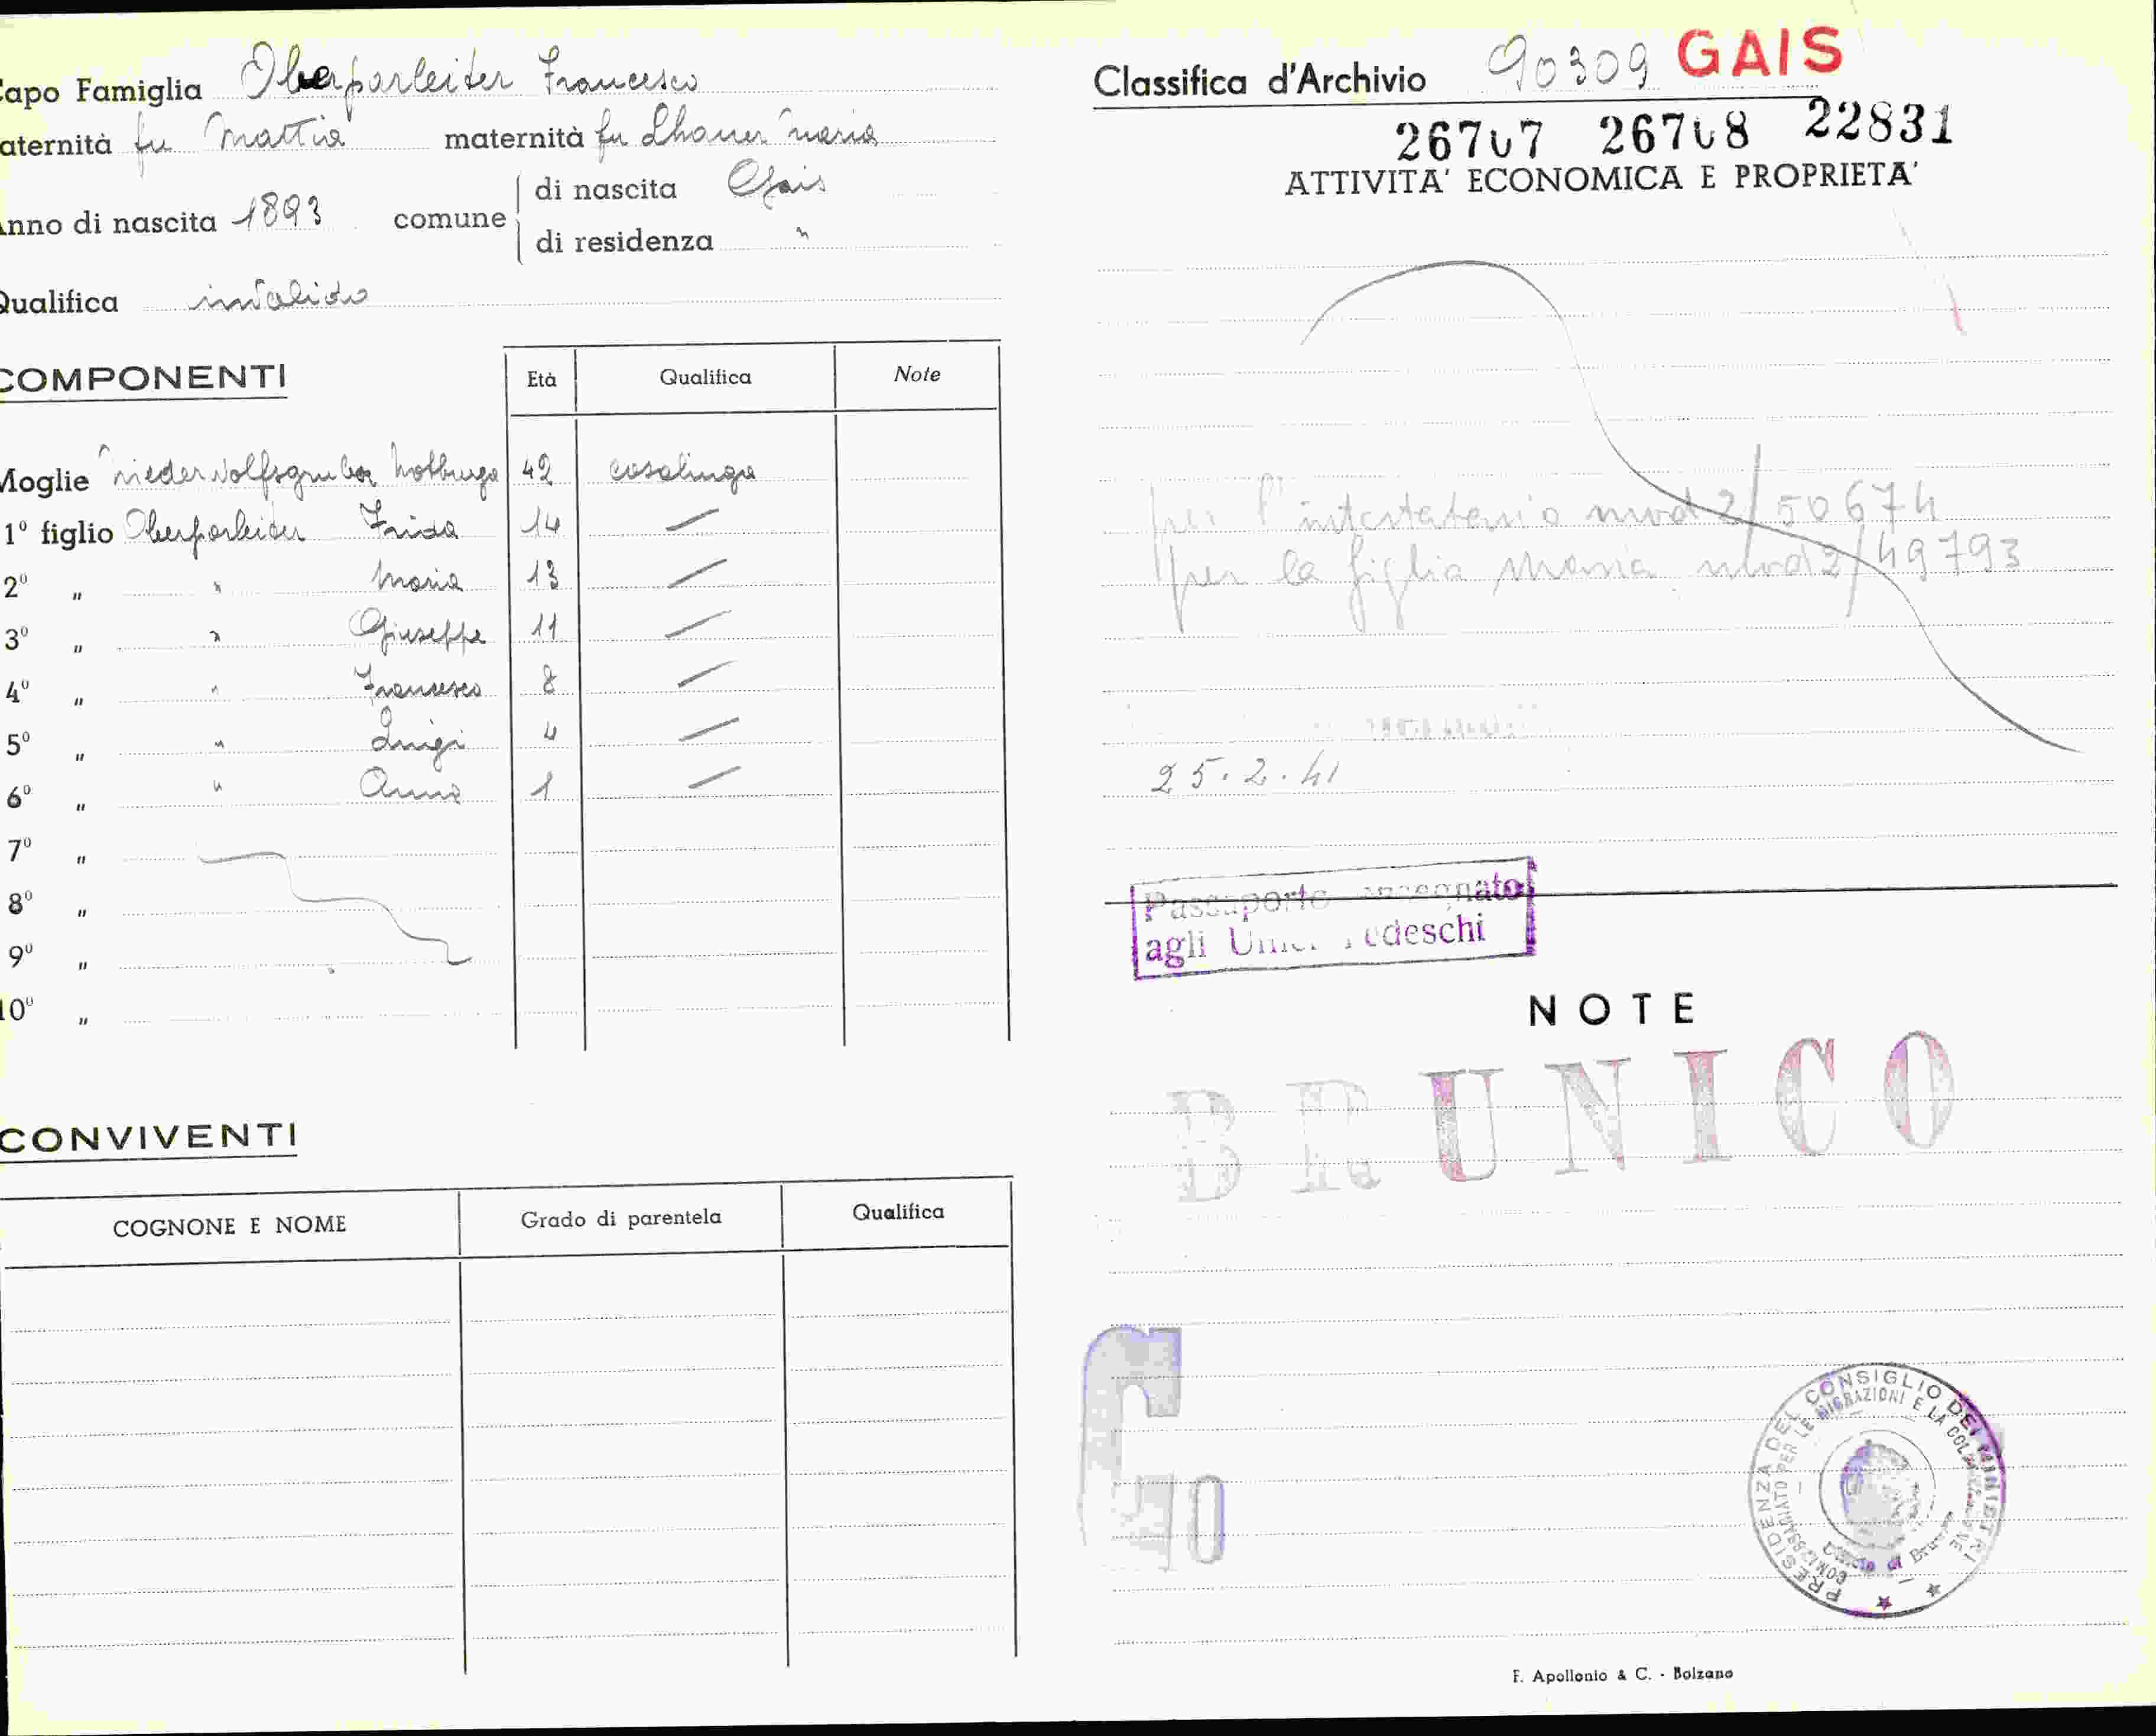 Capo Famiglia Oberparleiter Francesco
aternità fu Mattia maternità fu Lhaner Maria
Anno di nascita 1893 comune di nascita Gais
di residenza "
Qualifica invalido
COMPONENTI Età Qualifica Note
Moglie Niederwolfsgruber Notburga 42 casalinga
1º figlio Oberparleiter Frida 14 /
2º " " Maria 13 /
3º " " Giuseppe 11 /
4º " " Francesco 8 /
5º " " Luigi 4 /
6º " " Anna 1 /
7º "
8º "
9º "
10º "
CONVIVENTI
COGNONE E NOME Grado di parentela Qualifica
Classifica d'Archivio 90309 GAIS
26707 26708 22831
ATTIVITA' ECONOMICA E PROPRIETA'
per l'intestatario mod 2/50674
per la figlia Maria mod 2/49793
25.2.41
Passaporto consegnato
agli Uffici Tedeschi
NOTE
BRUNICO
PRESIDENZA DEL CONSIGLIO DEI MINISTRI
COMMISSARIATO PER LE MIGRAZIONI E LA COLONIZZAZIONE
di Brunico
F. Apollonio & C. - Bolzano